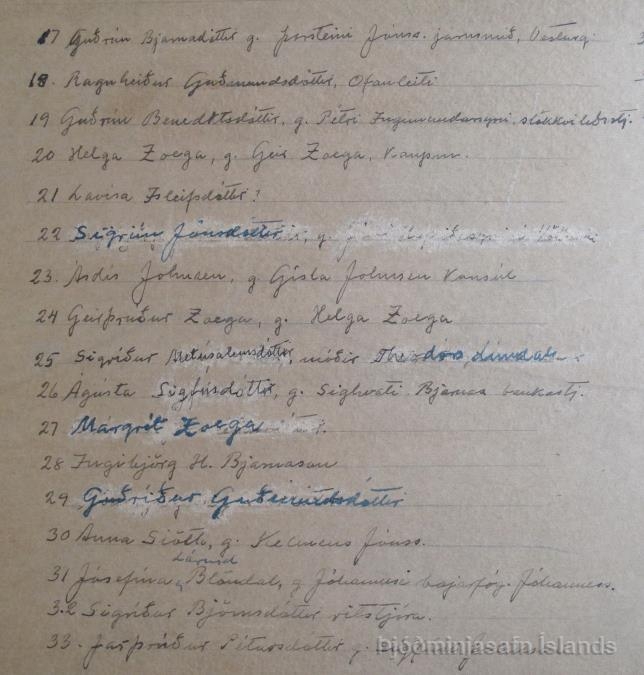 17 Guðrún Bjarnadóttir g. Þorsteini Jónss. járnsmið, Vesturg.
18. Ragnheiður Guðmundsdóttir, Ofanleiti
19 Guðrún Benediktsdóttir, g. Pétri Ingimundarsyni slökkviliðsstj.
20 Helga Zoega, g. Geir Zoega, Kaupm.
21 Lavisa Ísleifsdóttir?
22 Sigrún Jónsdóttir, g.
23. Ásdís Johnsen, g. Gísla Johnsen Konsúl
24 Geirþrúður Zoega, g. Helga Zoega
25 Sigríður Metúsalemsdóttir, móðir Theodórs Líndals
26 Ágústa Sigfúsdóttir, g. Sighvati Bjarnas bankastj.
27 Margrét Zoega
28 Ingibjörg H. Bjarnason
29 Guðríður Guðmundsdóttir
30 Anna g. Klemens Jónss.
Lárusd
31 Jósefína Blöndal, g Jóhannesi bæjarfóg. Jóhanness.
32 Sigríður Björnsdóttir ritstjóra.
33. Jarþrúður Pétursdóttir g.
Þjóðminjasafn Íslands